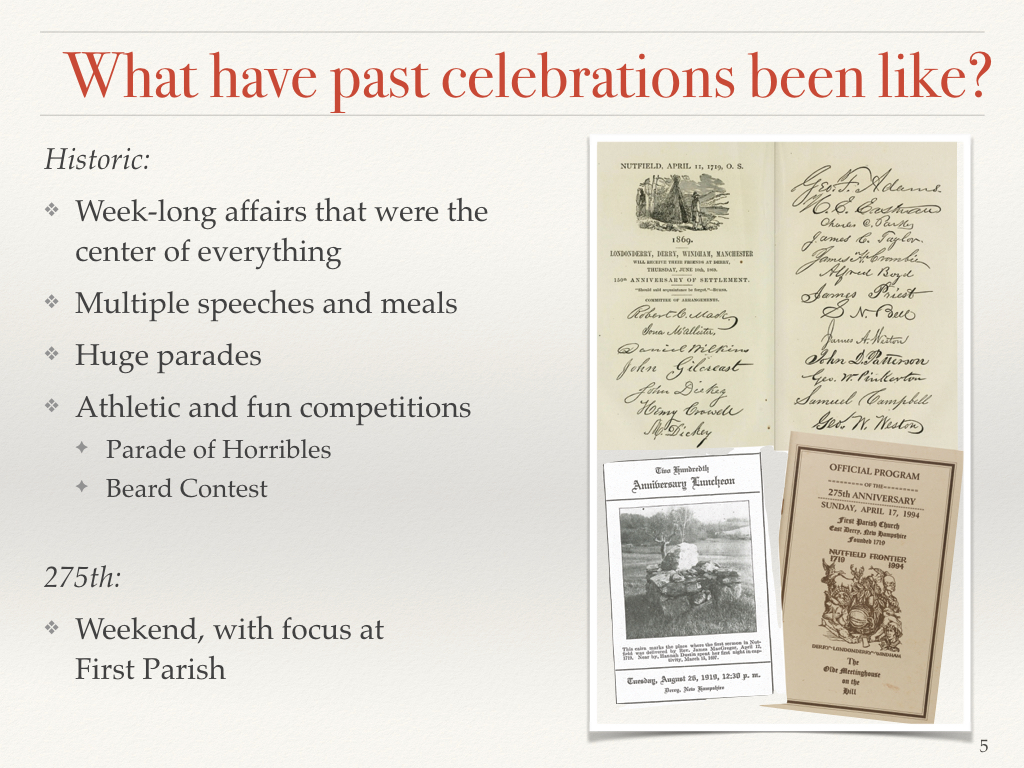 What have past celebrations been like?
Historic:
❖ Week-long affairs that were the
center of everything
❖ Multiple speeches and meals
❖ Huge parades
❖ Athletic and fun competitions
✦ Parade of Horribles
✦ Beard Contest
275th:
❖ Weekend, with focus at
First Parish
NUTFIELD, APRIL 11, 1719, O. S.
1869.
LONDONDERRY, DERRY, WINDHAM, MANCHESTER
WILL RECEIVE THEIR FRIENDS AT DERRY,
THURSDAY, JUNE 10th, 1869.
150th ANNIVERSARY OF SETTLEMENT.
"Should auld acquaintance be forgot."—Burns.
COMMITTEE OF ARRANGEMENTS.
Robert C. Mack,
McAllister,
Daniel Wilkins
John Gilcreast
John Dickey
Henry Crowell
Dickey
Geo. F. Adams.
W. E. Eastman
Charles C. Parker
James C. Taylor.
James H. Crombie
Alfred Boyd
James Priest
S. N. Bell
James A. Weston
John D. Patterson
Geo. W. Pinkerton
Samuel Campbell
Geo. W. Weston,
Two Hundredth
Anniversary Luncheon
This cairn marks the place where the first sermon in Nut-
field was delivered by Rev. James MacGregor, April 12,
1719. Near by, Hannah Dustin spent her first night in cap-
tivity, March 15, 1697.
Tuesday, August 26, 1919, 12:30 p. m.
Derry, New Hampshire
OFFICIAL PROGRAM
OF THE
275th ANNIVERSARY
SUNDAY, APRIL 17, 1994
First Parish Church
East Derry, New Hampshire
Founded 1719
NUTFIELD FRONTIER
1719 1994
DERRY-LONDONDERRY-WINDHAM
The
Olde Meetinghouse
on the
Hill
5